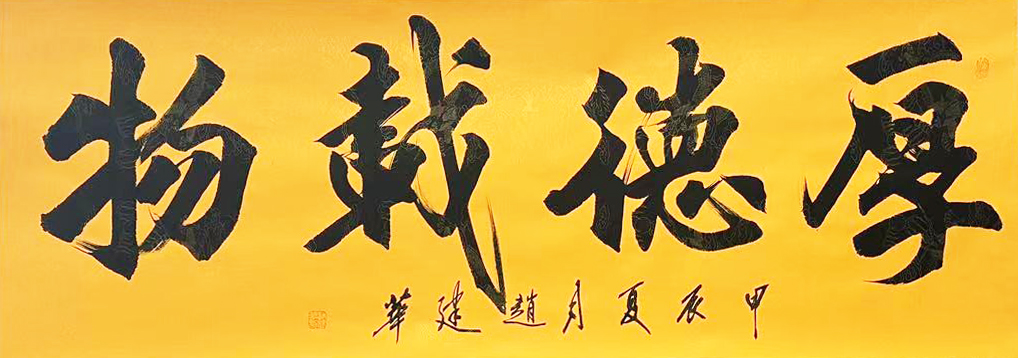 厚德載物
甲辰夏月趙建華